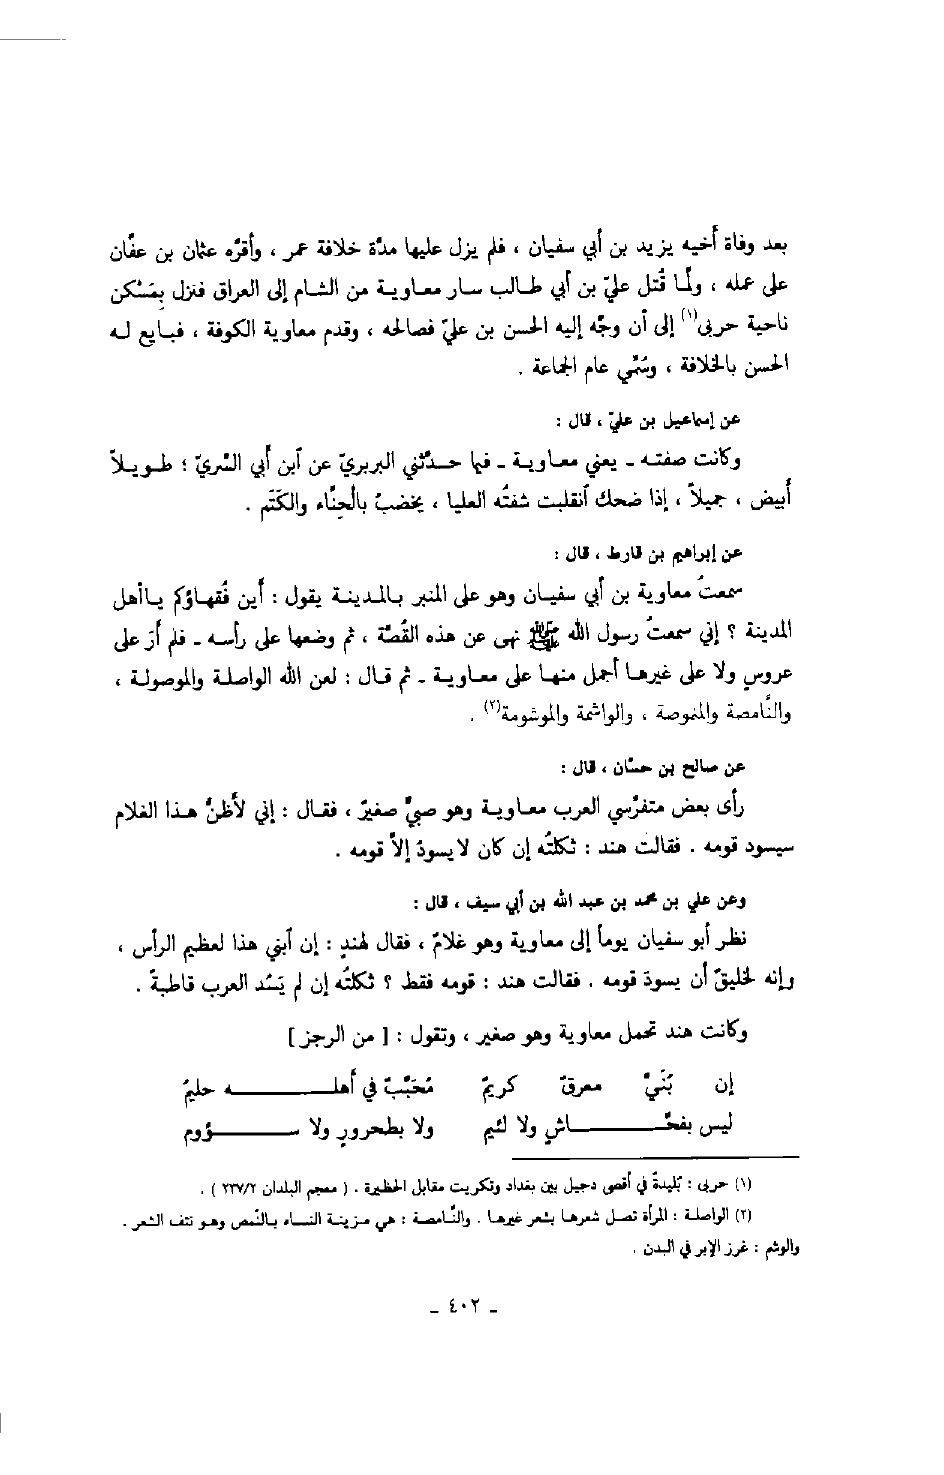 بعد وفاة أخيه يزيد بن أبي سفيان ، فلم يزل عليها مدّة خلافة عمر ، وأقرّه عثمان بن عفّان
على عمله ، ولمّا قُتل عليّ بن أبي طالب سار معاوية من الشام إلى العراق فنزل بِمَسْكن
ناحية حربى(١) إلى أن وجّه إليه الحسن بن عليّ فصالحه ، وقدم معاوية الكوفة ، فبايع له
الحسن بالخلافة ، وسُمّي عام الجماعة .
عن إسماعيل بن عليّ ، قال :
وكانت صفته ـ يعني معاوية ـ فيما حدّثني البربريّ عن آبن أبي السّريّ ؛ طويلاً
أبيض ، جميلاً ، إذا ضحك آنقلبت شفتُه العليا ، يخضبُ بالْحِنَّاء والكَتَم .
عن إبراهيم بن قارط ، قال :
سمعتُ معاوية بن أبي سفيان وهو على المنبر بالمدينة يقول : أين فُقهاؤكم ياأهل
المدينة ؟ إني سمعتُ رسول الله ﷺ نهى عن هذه القُصّة ، ثم وضعها على رأسه ـ فلم أرَ على
عروسٍ ولا على غيرها أجمل منها على معاوية ـ ثم قال : لعن الله الواصلة والموصولة ،
والنَّامصة والمنموصة ، والواشمة والموشومة(٢) .
عن صالح بن حسّان ، قال :
رأى بعض متفرّسي العرب معاوية وهو صبيٌّ صغيرٌ ، فقال : إني لأظنُّ هذا الغلام
سيسود قومه . فقالت هند : ثكلتُه إن كان لا يسودُ إلاّ قومه .
وعن علي بن محمد بن عبد الله بن أبي سيف ، قال :
نظر أبو سفيان يوماً إلى معاوية وهو غلامٌ ، فقال لهندٍ : إن آبني هذا لعظيم الرأس ،
وإنه لخليقٌ أن يسودَ قومه . فقالت هند : قومه فقط ؟ ثكلتُه إن لم يَسُد العرب قاطبةً .
وكانت هند تحمل معاوية وهو صغير ، وتقول : [ من الرجز ]
إن بُنَيَّ معرقٌ كريمٌ محَبَّبٌ في أهلـه حليمُ
ليس بفحّـاشٍ ولا لئيم ولا بطحرورٍ ولا سـؤوم
(١) حربى : بُليدةٌ في أقصى دجيل بين بغداد وتكريت مقابل الحظيرة . ( معجم البلدان ٢٣٧/٢ ) .
(٢) الواصلة : المرأة تصل شعرها بشعر غيرها . والنَّامصة : هي مزينة النساء بالنَّمص وهو نتف الشعر .
والوشم : غرز الإبر في البدن .
ـ ٤٠٢ ـ